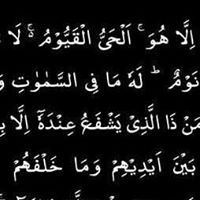 اِلَّا هُوَ ۚ اَلْحَیُّ الْقَیُّوْمُ ۬ۚ لَا
نَوْمٌ ؕ لَهٗ مَا فِی السَّمٰوٰتِ وَ
مَنْ ذَا الَّذِیْ یَشْفَعُ عِنْدَهٗۤ اِلَّا بِ
بَیْنَ اَیْدِیْهِمْ وَمَا خَلْفَهُمْ